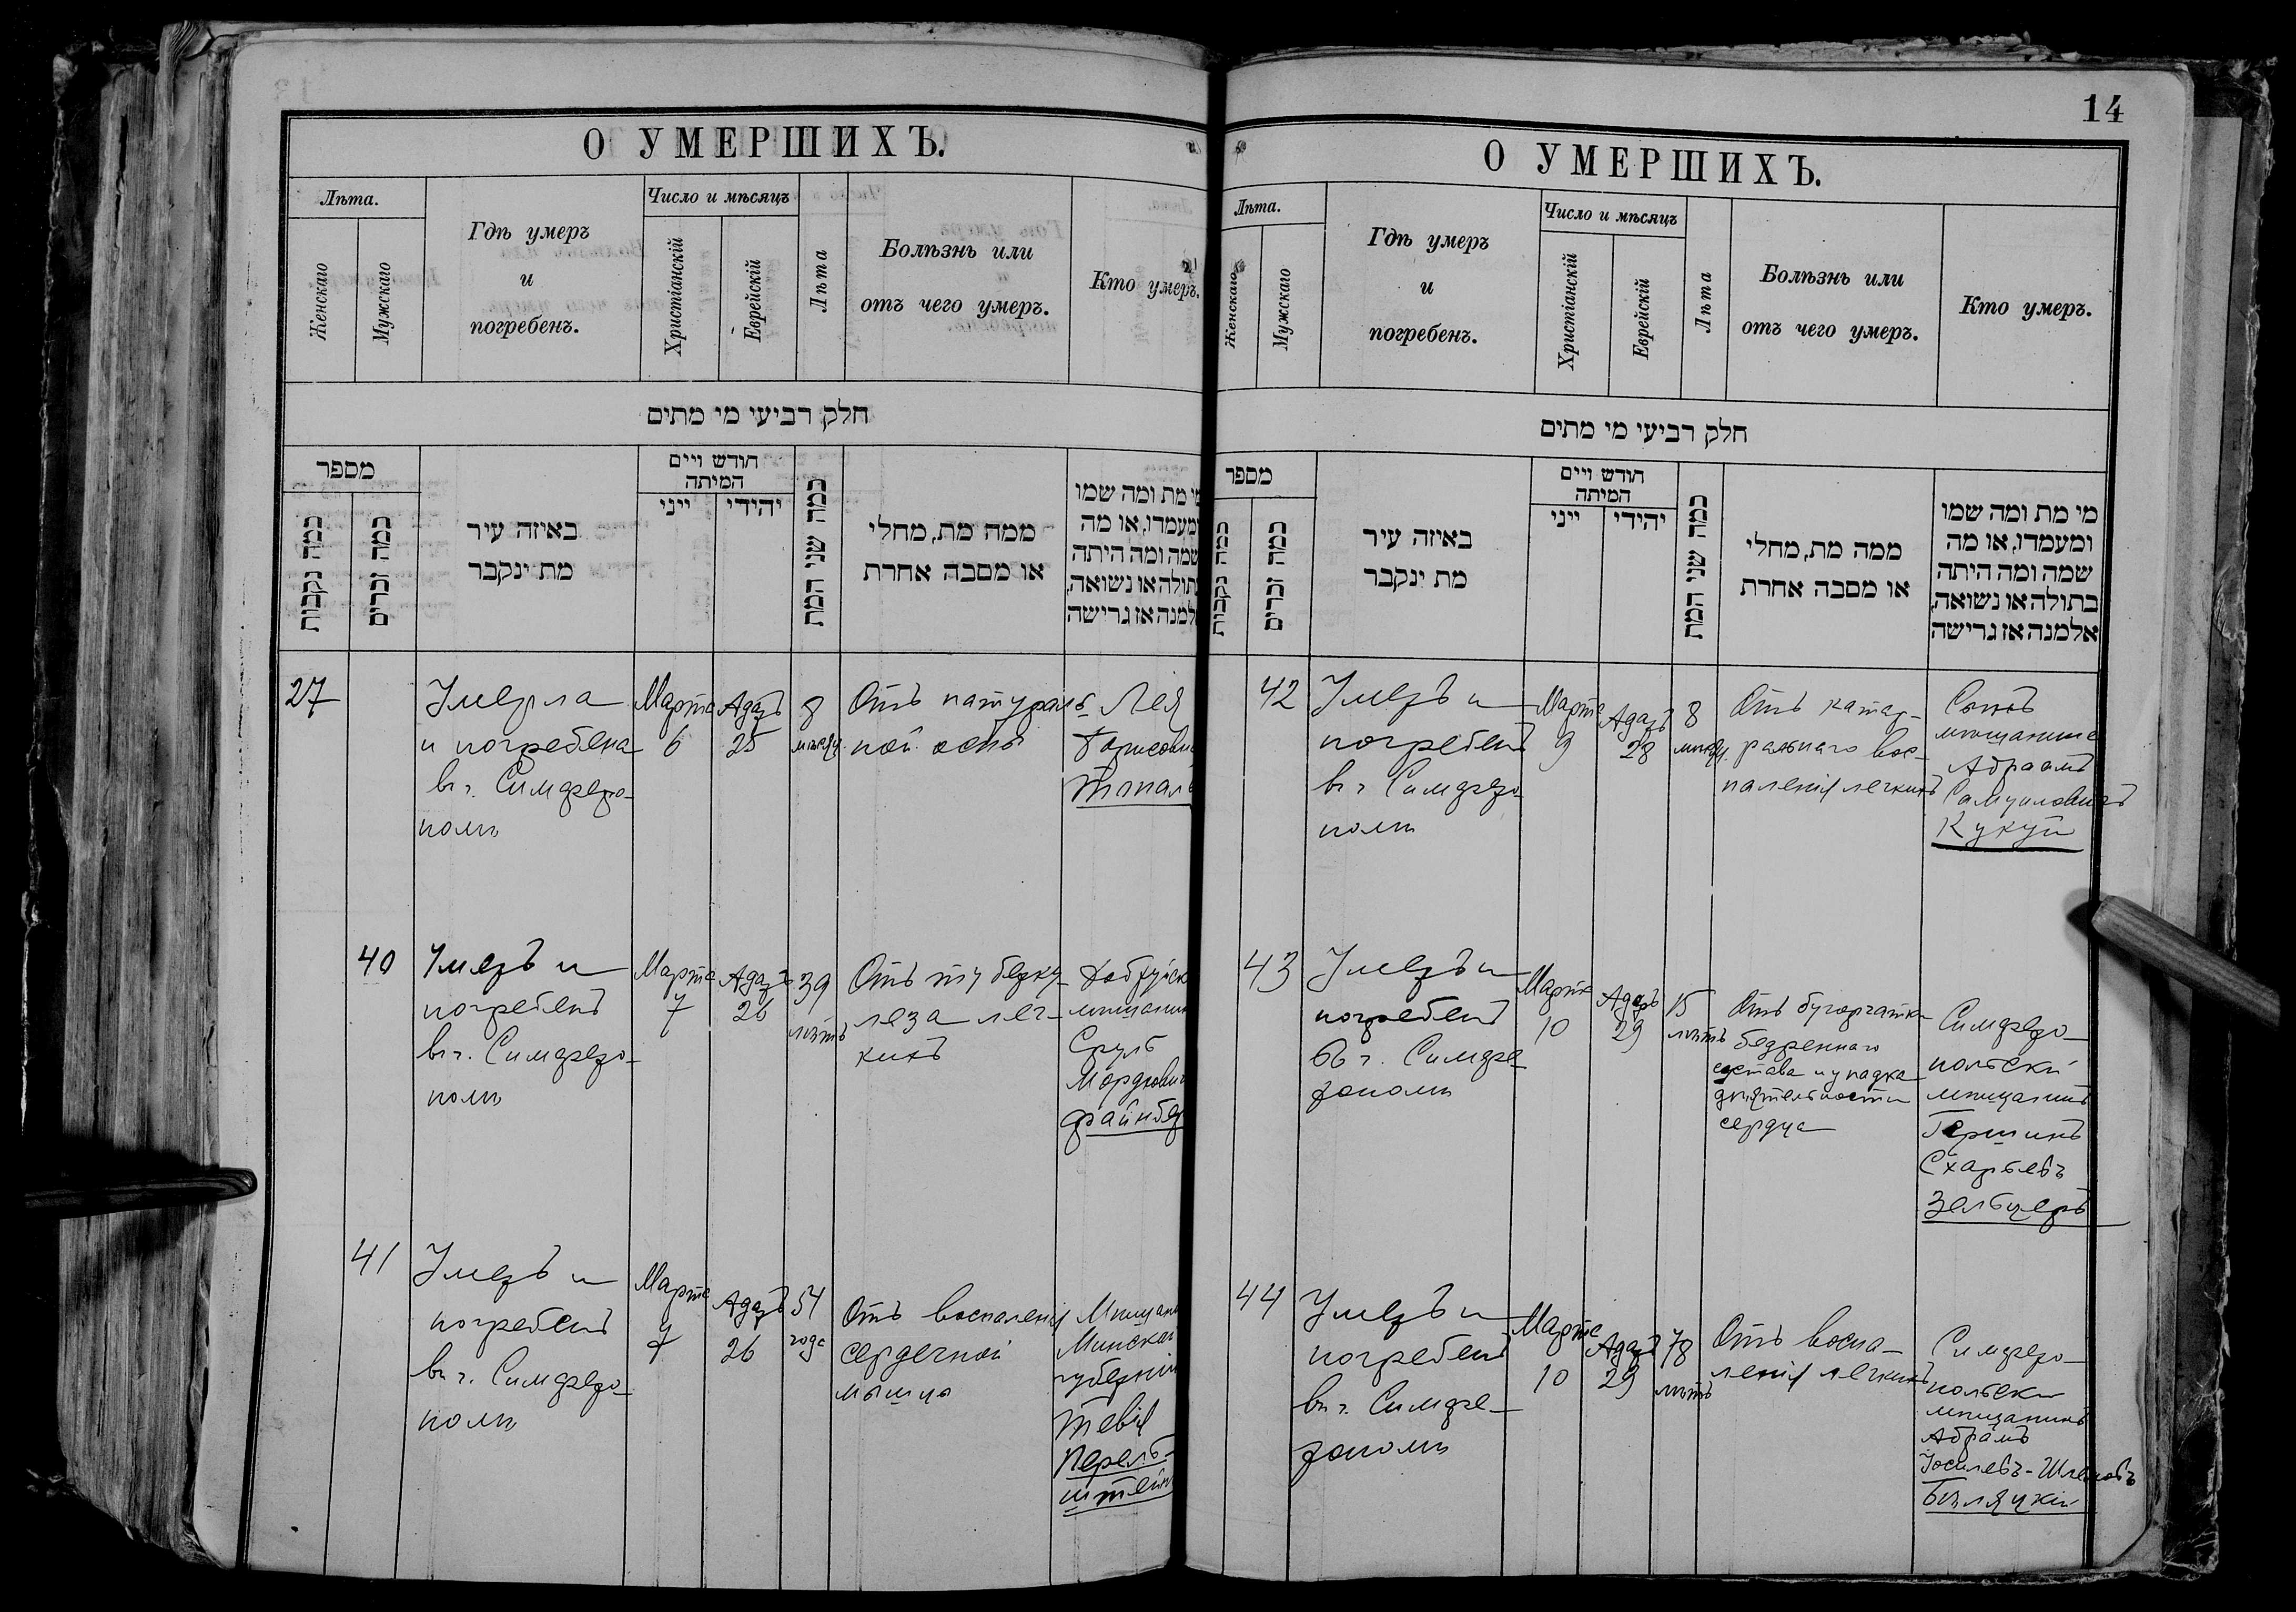 14
О УМЕРШИХЪ.
Лѣта.
Женскаго
Мужскаго
Гдѣ умеръ
и
погребенъ.
Число и мѣсяцъ
Христіанскій
Еврейскій
Лѣта
Болѣзнь или
отъ чего умеръ.
Кто умеръ.
חלק רביעי מי מתים
מספר
כמה נקבות
כמה זכרים
באיזה עיר
מת ינקבר
חודש ויים
המיתה
ייני
יהידי
כמה שני המת
ממה מת, מחלי
או מסבה אחרת
מי מת ומה שמו
ומעמדו, או מה
שמה ומה היתה
בתולה או נשואה,
אלמנה אז גרישה
27
Умерла
и погребена
въ г. Симферо-
полѣ
Марта
6
Адаръ
25
8
мѣсяц.
Отъ натураль-
ной оспы
Лея
Борисовн
Топал
40
Умеръ и
погребенъ
въ г. Симферо-
полѣ
Марта
7
Адаръ
26
39
лѣтъ
Отъ туберку-
леза лег-
кихъ
мѣщанин
Сруль
Мордкович
Файнбер
41
Умеръ и
погребенъ
въ г. Симферо-
полѣ
Марта
7
Адаръ
26
54
года
Отъ воспаленія
сердечной
мышцы
Мѣщани
Минской
губерніи
Тевія
Перель-
штейн
О УМЕРШИХЪ.
Лѣта.
Женскаго
Мужскаго
Гдѣ умеръ
и
погребенъ.
Число и мѣсяцъ
Христіанскій
Еврейскій
Лѣта
Болѣзнь или
отъ чего умеръ.
Кто умеръ.
חלק רביעי מי מתים
מספר
כמה נקבות
כמה זכרים
באיזה עיר
מת ינקבר
חודש ויים
המיתה
ייני
יהידי
כמה שני המת
ממה מת, מחלי
או מסבה אחרת
מי מת ומה שמו
ומעמדו, או מה
שמה ומה היתה
בתולה או נשואה,
אלמנה אז גרישה
42
Умеръ и
погребенъ
въ г. Симферо-
полѣ
Марта
9
Адаръ
28
8
мѣсяц.
Отъ катар-
ральнаго вос-
паленія легкихъ
Сынъ
мѣщанина
Абраамъ
Самуиловичъ
Кукуй
43
Умеръ и
погребенъ
въ г. Симфе-
рополѣ
Марта
10
Адаръ
29
15
лѣтъ
Отъ бугорчатки
бедреннаго
сустава и упадка
дѣятельности
сердца
Симферо-
польскій
мѣщанинъ
Гершинъ
Схарьевъ
Зельцеръ
44
Умеръ и
погребенъ
въ г. Симфе-
рополѣ
Марта
10
Адаръ
29
78
лѣтъ
Отъ воспа-
ленія легкихъ
Симферо-
польскій
мѣщанинъ
Абрамъ
Іосилевъ-Шлемовъ
Бѣляцкій